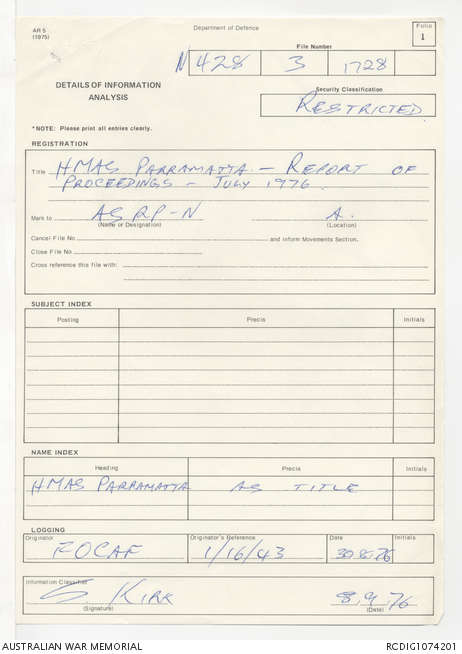 AR 5
(1975)
Department of Defence
Folio
1
File Number
N 428 3 1728
DETAILS OF INFORMATION
ANALYSIS
Security Classification
RESTRICTED
*NOTE: Please print all entries clearly.
REGISTRATION
Title HMAS PARRAMATTA - REPORT OF
PROCEEDINGS - JULY 1976.
Mark to ASRP-N A.
(Name or Designation) (Location)
Cancel File No. and inform Movements Section.
Close File No.
Cross reference this file with:
SUBJECT INDEX
Posting Precis Initials
NAME INDEX
Heading Precis Initials
HMAS PARRAMATTA AS TITLE
LOGGING
Originator Originator's Reference Date Initials
FOCAF 1/16/43 30.8.76
Information Classifier
S KIRK 8.9.76
(Signature) (Date)
AUSTRALIAN WAR MEMORIAL RCDIG1074201